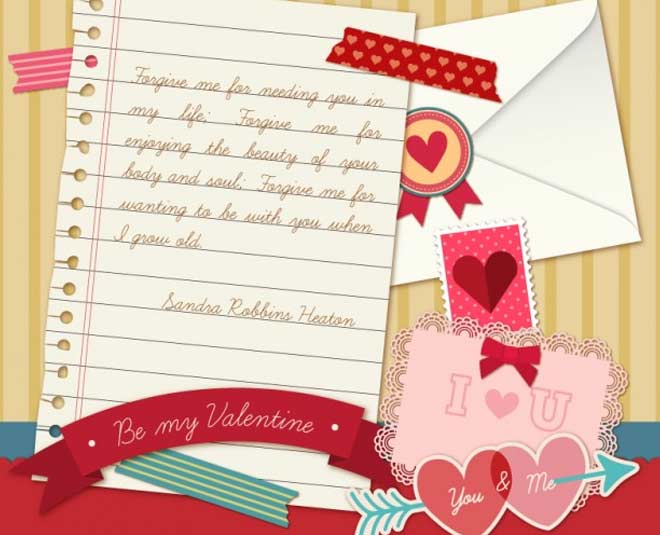 Forgive me for needing you in
my life; Forgive me for
enjoying the beauty of your
body and soul; Forgive me for
wanting to be with you when
I grow old.
Sandra Robbins Heaton
Be my Valentine
I U
You & Me